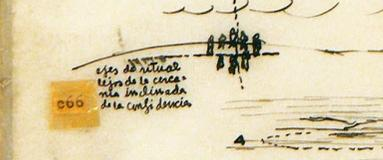 ejes de ritual
lejos de la cerca-
nía inclinada
de la confidencia
c66